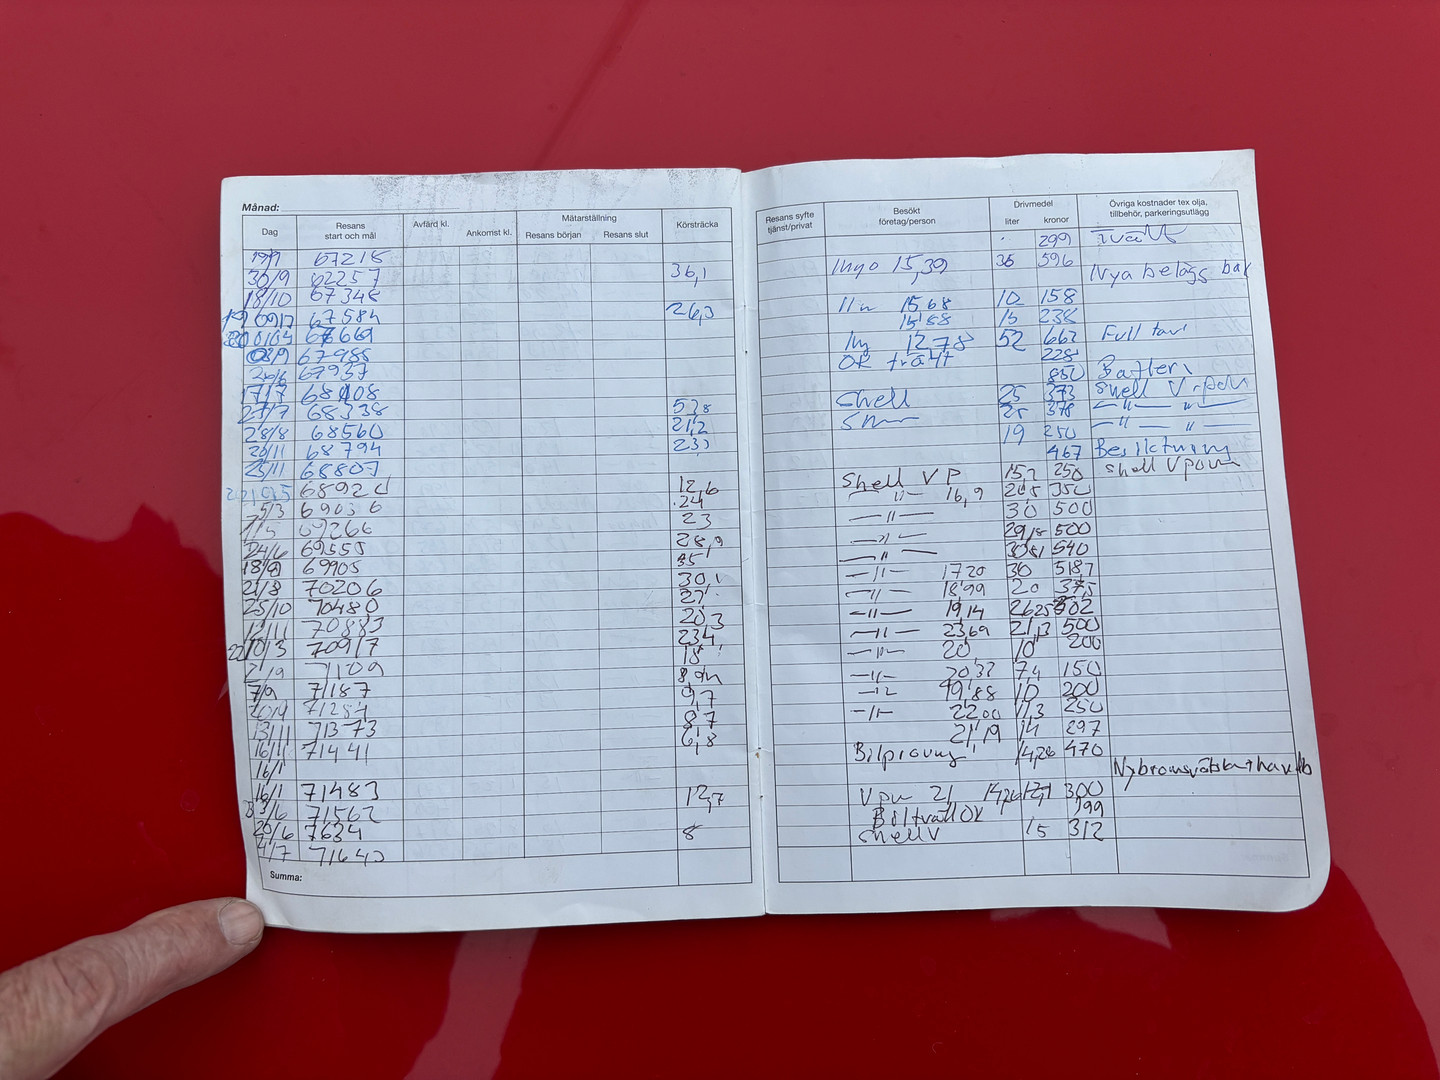 Månad:
Dag Resans start och mål Avfärd kl. Ankomst kl. Mätarställning Resans början Resans slut Körsträcka
67218
30/9 62257 36,1
18/10 67348
67584 26,3
67669
67985
67937
17/7 68408
27/7 68338 53,8
28/8 68560 21,2
20/11 68794 23,
25/11 68807
6892 12,6
5/3 69036 24
1/5 69266 23
24/6 69555 28,9
18/8 69905 35
21/8 70206 30,1
25/10 70480 27
12/11 70883 20,3
22 10/3 70917 23,4
71109 18
7/9 71187
20/9 71284 9,7
13/11 71373 8,7
16/11 71441 6,8
16/1
16/1 71483 12,7
71562
20/6 7634 8
4/7 71640
Summa:
Resans syfte tjänst/privat Besökt företag/person Drivmedel liter kronor Övriga kostnader tex olja, tillbehör, parkeringsutlägg
299 Tvätt
Ingo 15,39 36 596
Nya belägg bak
15,68 10 158
15,88 15 238
Ing 12,78 52 662 Full tank
OK tvätt 228
850 Batteri
Shell 25 373 Shell V-pow
25 378 —"— "—
19 250 —"— "—
467 Besiktning
Shell V P 15,2 250 Shell Vpow
—"— 16,9 20,5 350
—"— 30 500
—"— 500
—"— 540
—"— 17,20 30 518,7
—"— 18,99 20 375
—"— 19,14 26,25 502
—"— 23,69 21,3 500
—"— 20 10 200
—"— 20,37 7,4 150
—"— 19,88 10 200
—"— 22,00 11,3 250
21,19 14 297
Bilprovning 470
Nybromsvätska
V pow 21 300
Biltvätt OK 199
Shell V 15 312